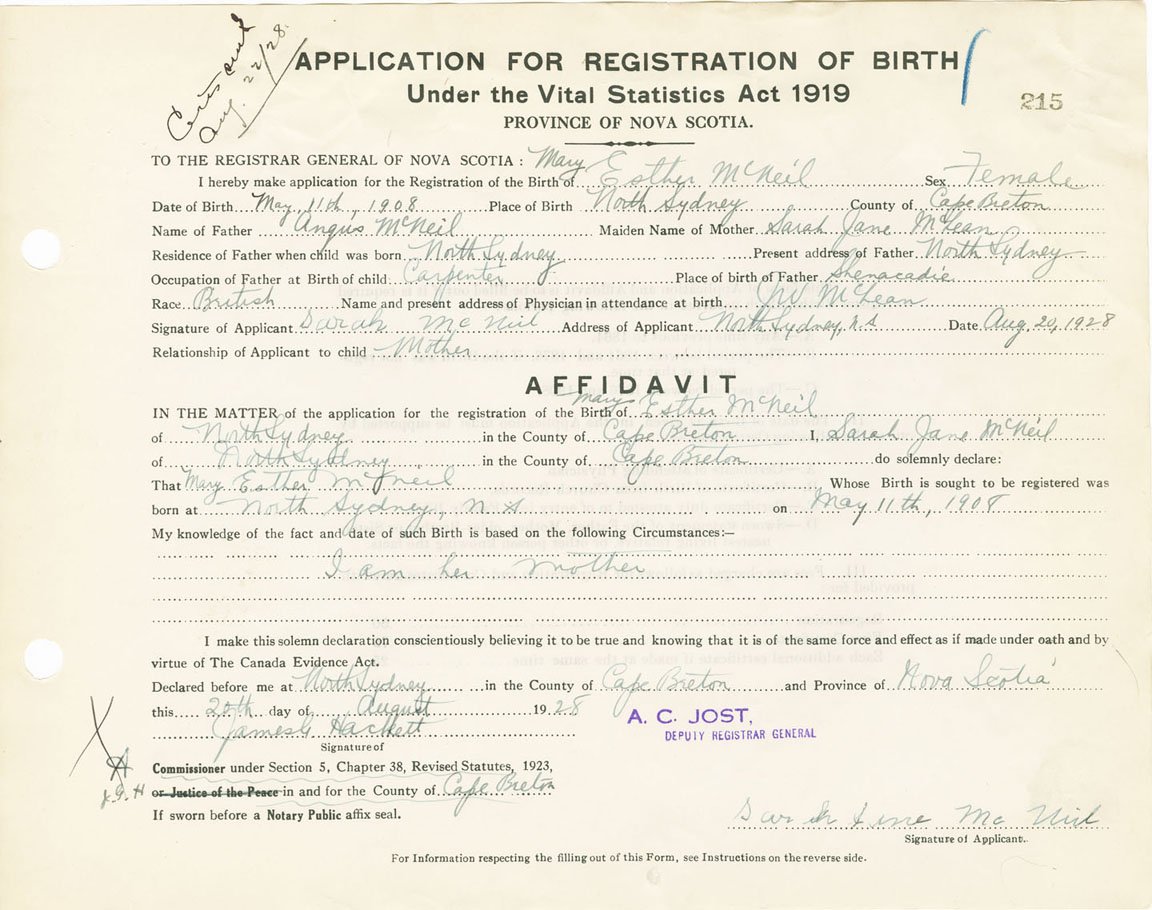 Cert sent
Aug. 22/28.
APPLICATION FOR REGISTRATION OF BIRTH
Under the Vital Statistics Act 1919
215
PROVINCE OF NOVA SCOTIA.
TO THE REGISTRAR GENERAL OF NOVA SCOTIA :
I hereby make application for the Registration of the Birth of Mary Esther McNeil Sex Female
Date of Birth May, 11th, 1908 Place of Birth North Sydney County of Cape Breton
Name of Father Angus McNeil Maiden Name of Mother Sarah Jane McLean
Residence of Father when child was born North Sydney Present address of Father North Sydney
Occupation of Father at Birth of child Carpenter Place of birth of Father Shenacadie
Race British Name and present address of Physician in attendance at birth McLean
Signature of Applicant Sarah Mc Neil Address of Applicant North Sydney, N.S Date Aug. 20, 1928
Relationship of Applicant to child Mother
AFFIDAVIT
IN THE MATTER of the application for the registration of the Birth of Mary Esther McNeil
of North Sydney in the County of Cape Breton I, Sarah Jane McNeil
of North Sydney in the County of Cape Breton do solemnly declare:
That Mary Esther McNeil Whose Birth is sought to be registered was
born at North Sydney, N.S on May 11th, 1908
My knowledge of the fact and date of such Birth is based on the following Circumstances:—
I am her mother
I make this solemn declaration conscientiously believing it to be true and knowing that it is of the same force and effect as if made under oath and by
virtue of The Canada Evidence Act.
Declared before me at North Sydney in the County of Cape Breton and Province of Nova Scotia
this 20th day of August 1928
A. C. JOST,
DEPUTY REGISTRAR GENERAL
James G Hackett
Signature of
A Commissioner under Section 5, Chapter 38, Revised Statutes, 1923,
J.G.H or Justice of the Peace in and for the County of Cape Breton
If sworn before a Notary Public affix seal.
Sarah Jane Mc Neil
Signature of Applicant.
For Information respecting the filling out of this Form, see Instructions on the reverse side.